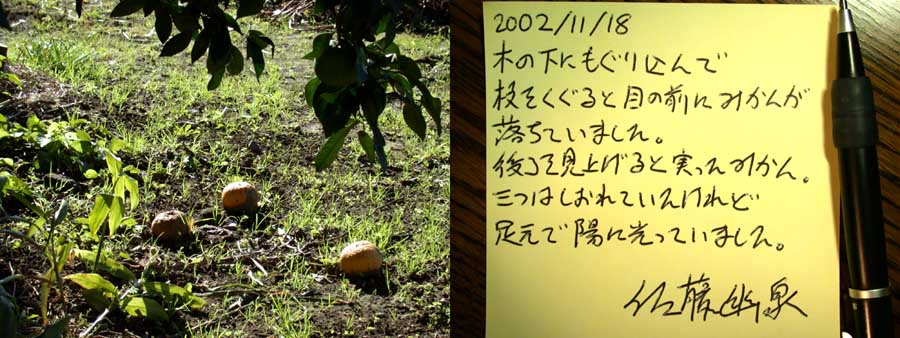 2002/11/18
木の下にもぐり込んで
枝をくぐると目の前にみかんが
落ちていました。
後ろを見上げると実ったみかん。
三つはしおれていたけれど
足元で陽に光っていました。
佐藤幽泉